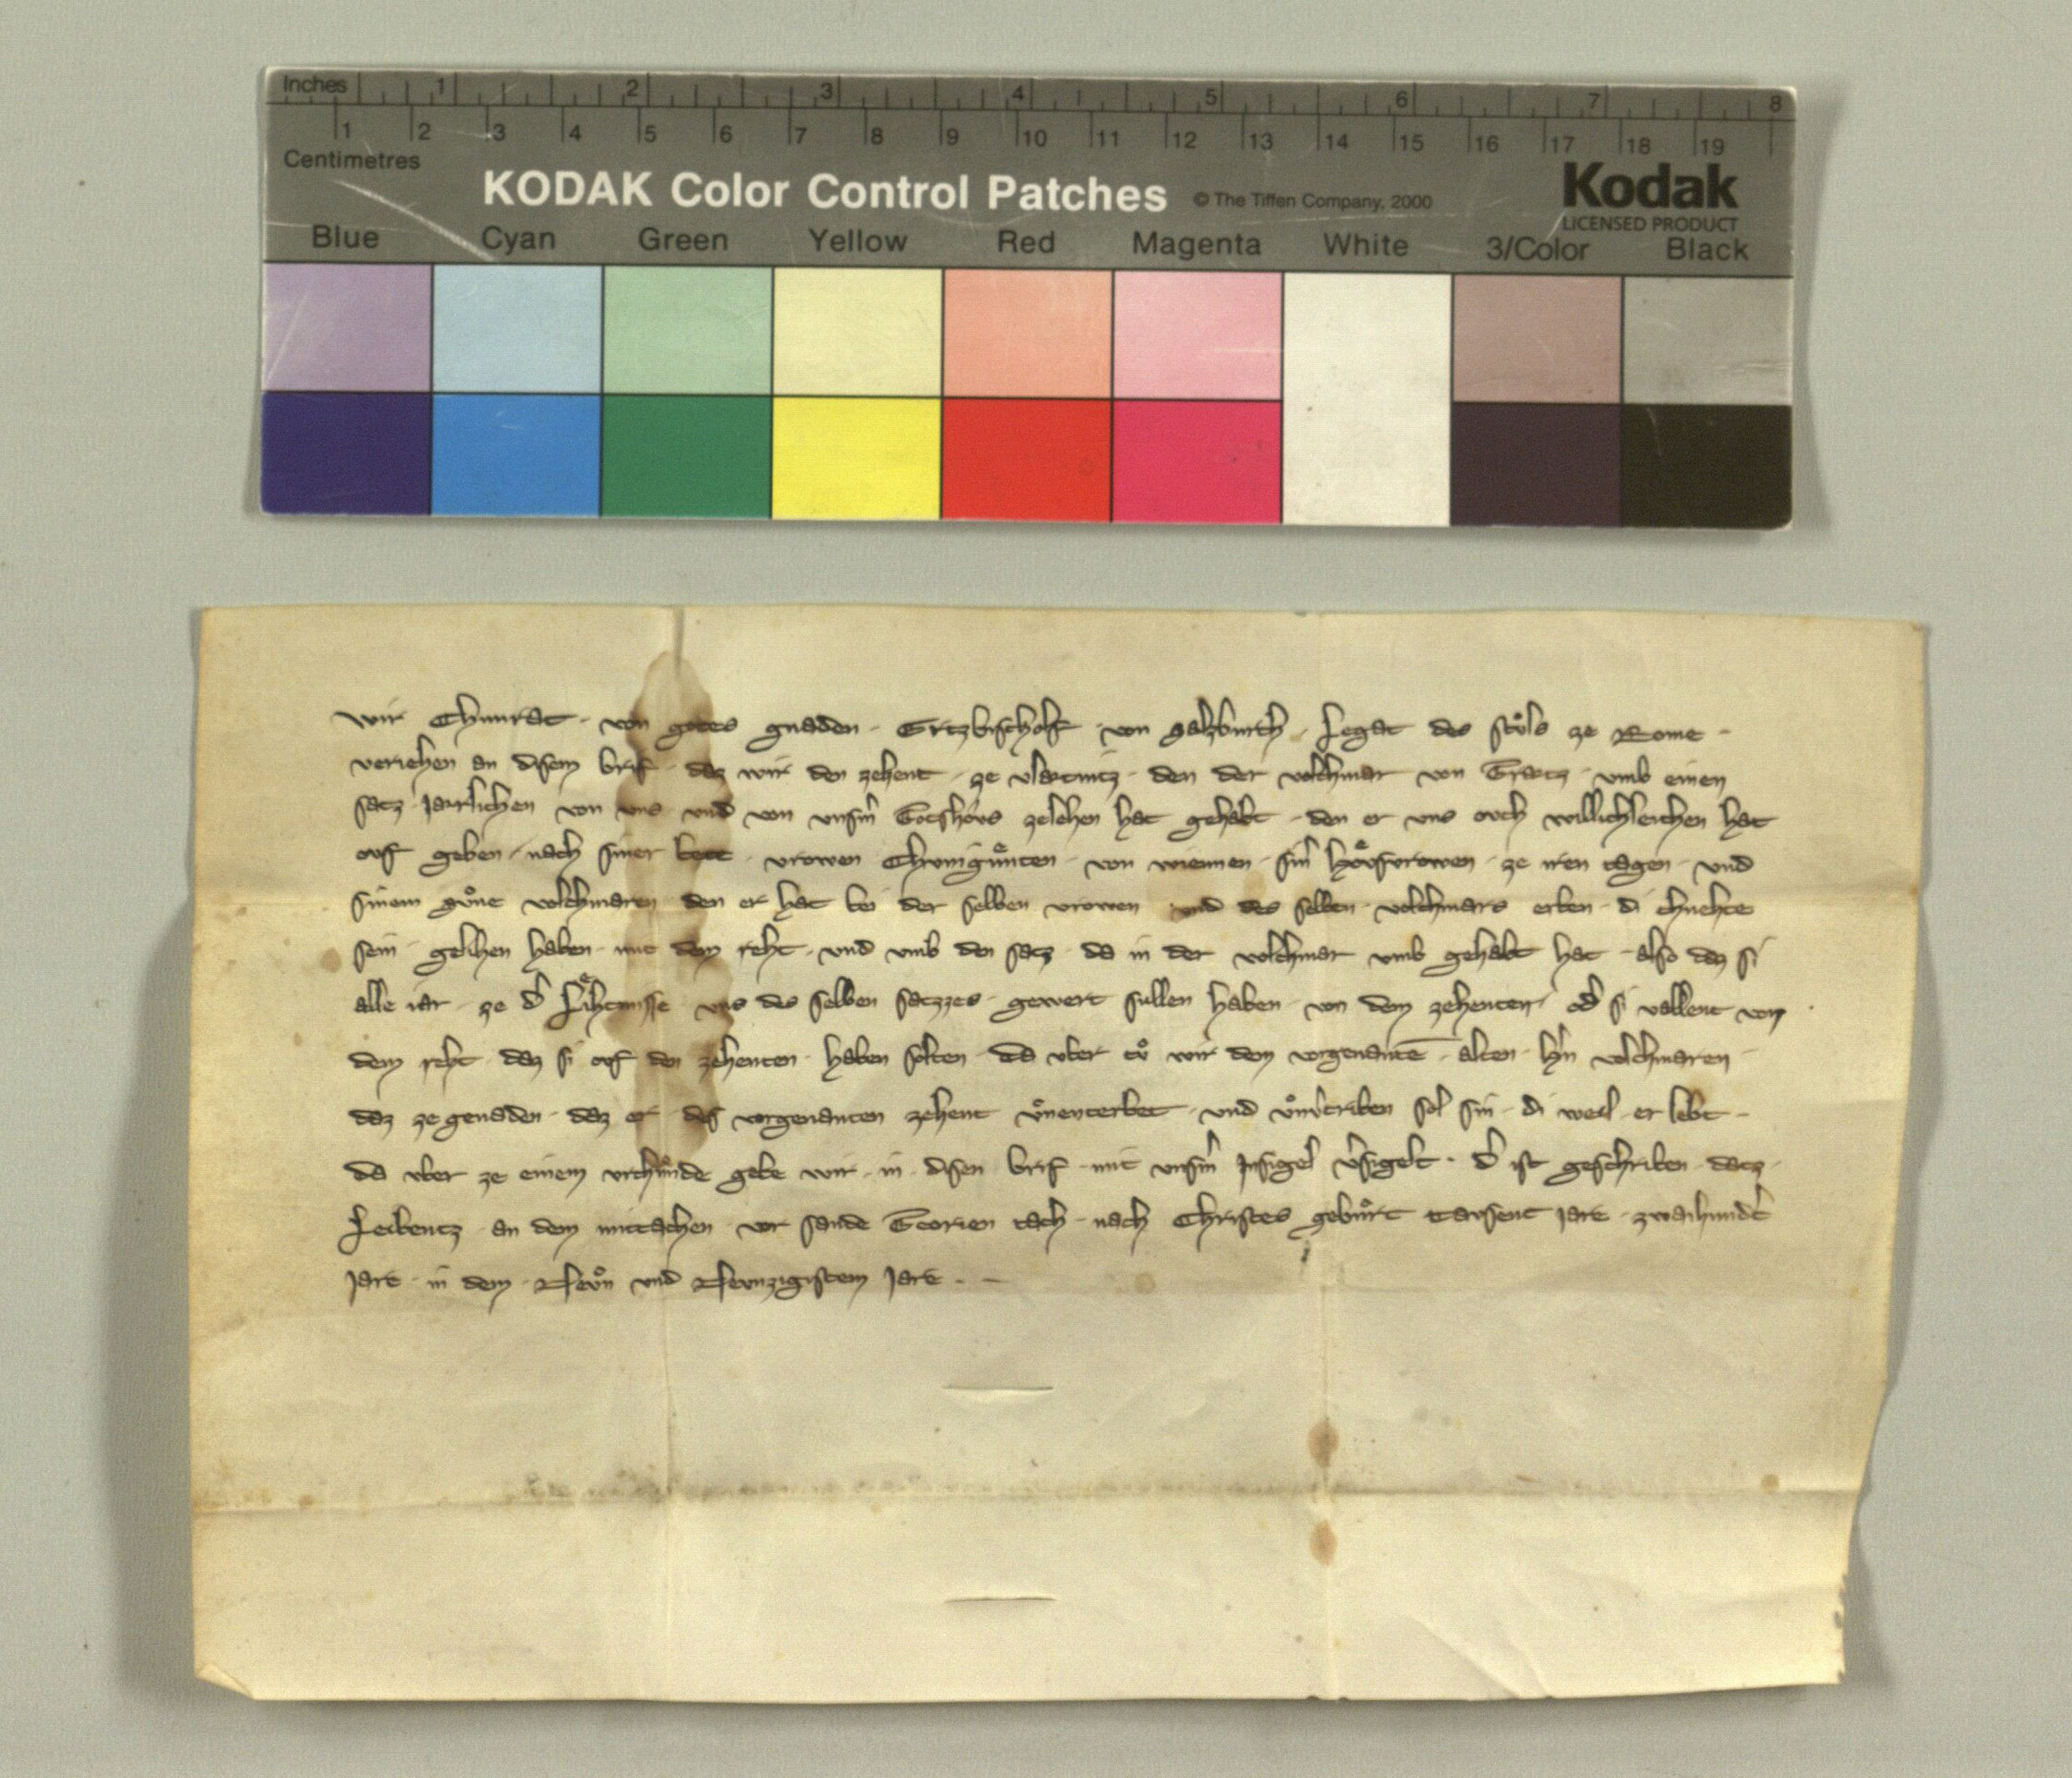 Inches 1 2 3 4 5 6 7 8
1 2 3 4 5 6 7 8 9 10 11 12 13 14 15 16 17 18 19
Centimetres
KODAK Color Control Patches © The Tiffen Company, 2000 Kodak
LICENSED PRODUCT
Blue Cyan Green Yellow Red Magenta White 3/Color Black
Wir Chunrat · von gotes gnaden · Ertzbischolf · von Salzburch · Legat des stůls ze Rome ·
veriehen an disem brif · daz wir den zehent · ze · den der volchmar von Graetz · umb einen
satz · Jaerlichen von uns und von unserm Gotshovs zelehen hat gehabt · den er uns ovch willichleichen hat
ovf geben · nach siner bete · vrowen Chunigůnten · von wiennen · sinˀ hovsvrowen · ze iren tagen · und
sinem svͦne volchmaren den er hat bei der selben vrowen und des selben · volchmars erben · di chnehte
sein · gelihen haben · mit dem reht · und umb den satz · da in der volchmar umb gehabt hat · also daz si
alle iar · ze dˀ Liehtmisse uns des selben satzzes · gewert sullen haben · von dem zehenten · odˀ si vallent von
dem reht daz si ovf den zehenten · haben solten · da uber tvͦ wir dem vorgenantē · alten · hˀn volchmaren ·
daz ze genaden · daz er des vorgenanten zehent vͦnenterbet · und vͦnvˀtriben sol sin · di weil · er lebt ·
da uber ze einem urchuͦnde gebe wir · in · disen brif · mit unsˀm Insigel vˀsigelt · dˀ ist geschriben · datz ·
Leibentz · an dem mittachen · vor sande Georien tach · nach Christes gebuͦrt tavsent jare · zwaihundˀt
Jare · in dem Nevͦn und Nevnzigistem Jare ·